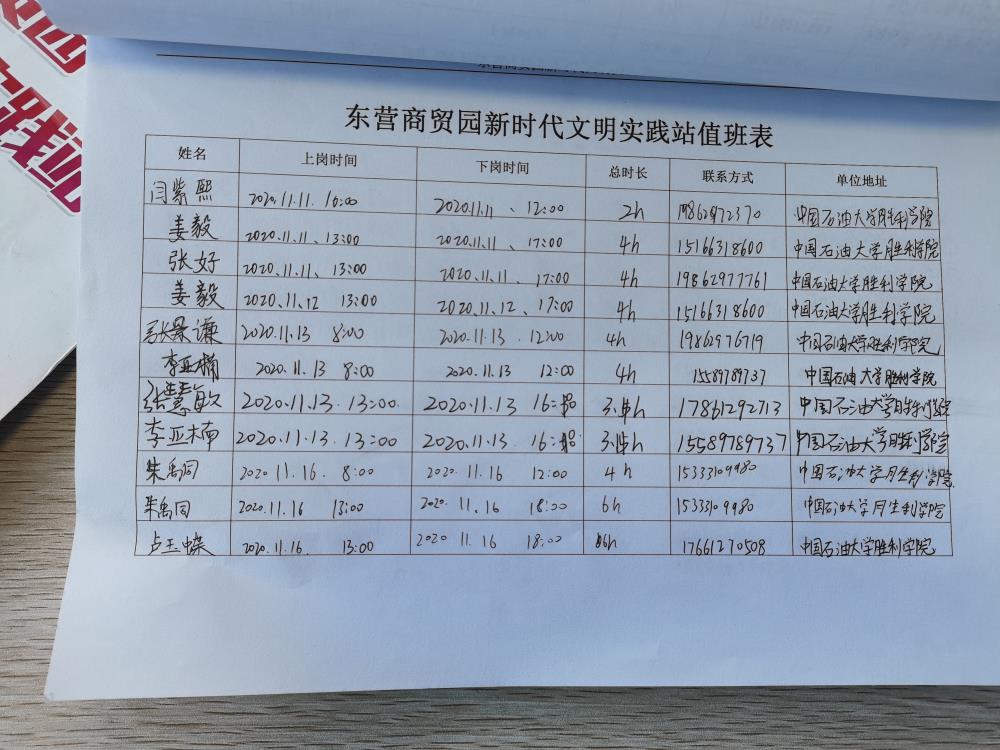 实践站
东营商贸园新时代文明实践站值班表
姓名 上岗时间 下岗时间 总时长 联系方式 单位地址
闫紫熙 2020.11.11. 10:00 2020.11.11、12:00 2h 19862972370 中国石油大学胜利学院
姜毅 2020.11.11、13:00 2020.11.11、17:00 4h 15166318600 中国石油大学胜利学院
张好 2020.11.11、13:00 2020.11.11、17:00 4h 19862977761 中国石油大学胜利学院
姜毅 2020.11.12 13:00 2020.11.12、17:00 4h 15166318600 中国石油大学胜利学院
张景谦 2020.11.13 8:00 2020.11.13. 12:00 4h 19862976719 中国石油大学胜利学院
李亚楠 2020.11.13 8:00 2020.11.13 12:00 4h 15589789737 中国石油大学胜利学院
张慧敏 2020.11.13. 13:00 2020.11.13 16: h 17861292713 中国石油大学胜利学院
李亚楠 2020.11.13. 13:00 2020.11.13. 16: h 15589789737 中国石油大学胜利学院
朱禹同 2020.11.16. 8:00 2020.11.16. 12:00 4h 15333109980 中国石油大学胜利学院
朱禹同 2020.11.16 13:00 2020.11.16 18:00 6h 15333109980 中国石油大学胜利学院
卢玉蝶 2020.11.16. 13:00 2020 11.16 18:00 6h 17661270508 中国石油大学胜利学院